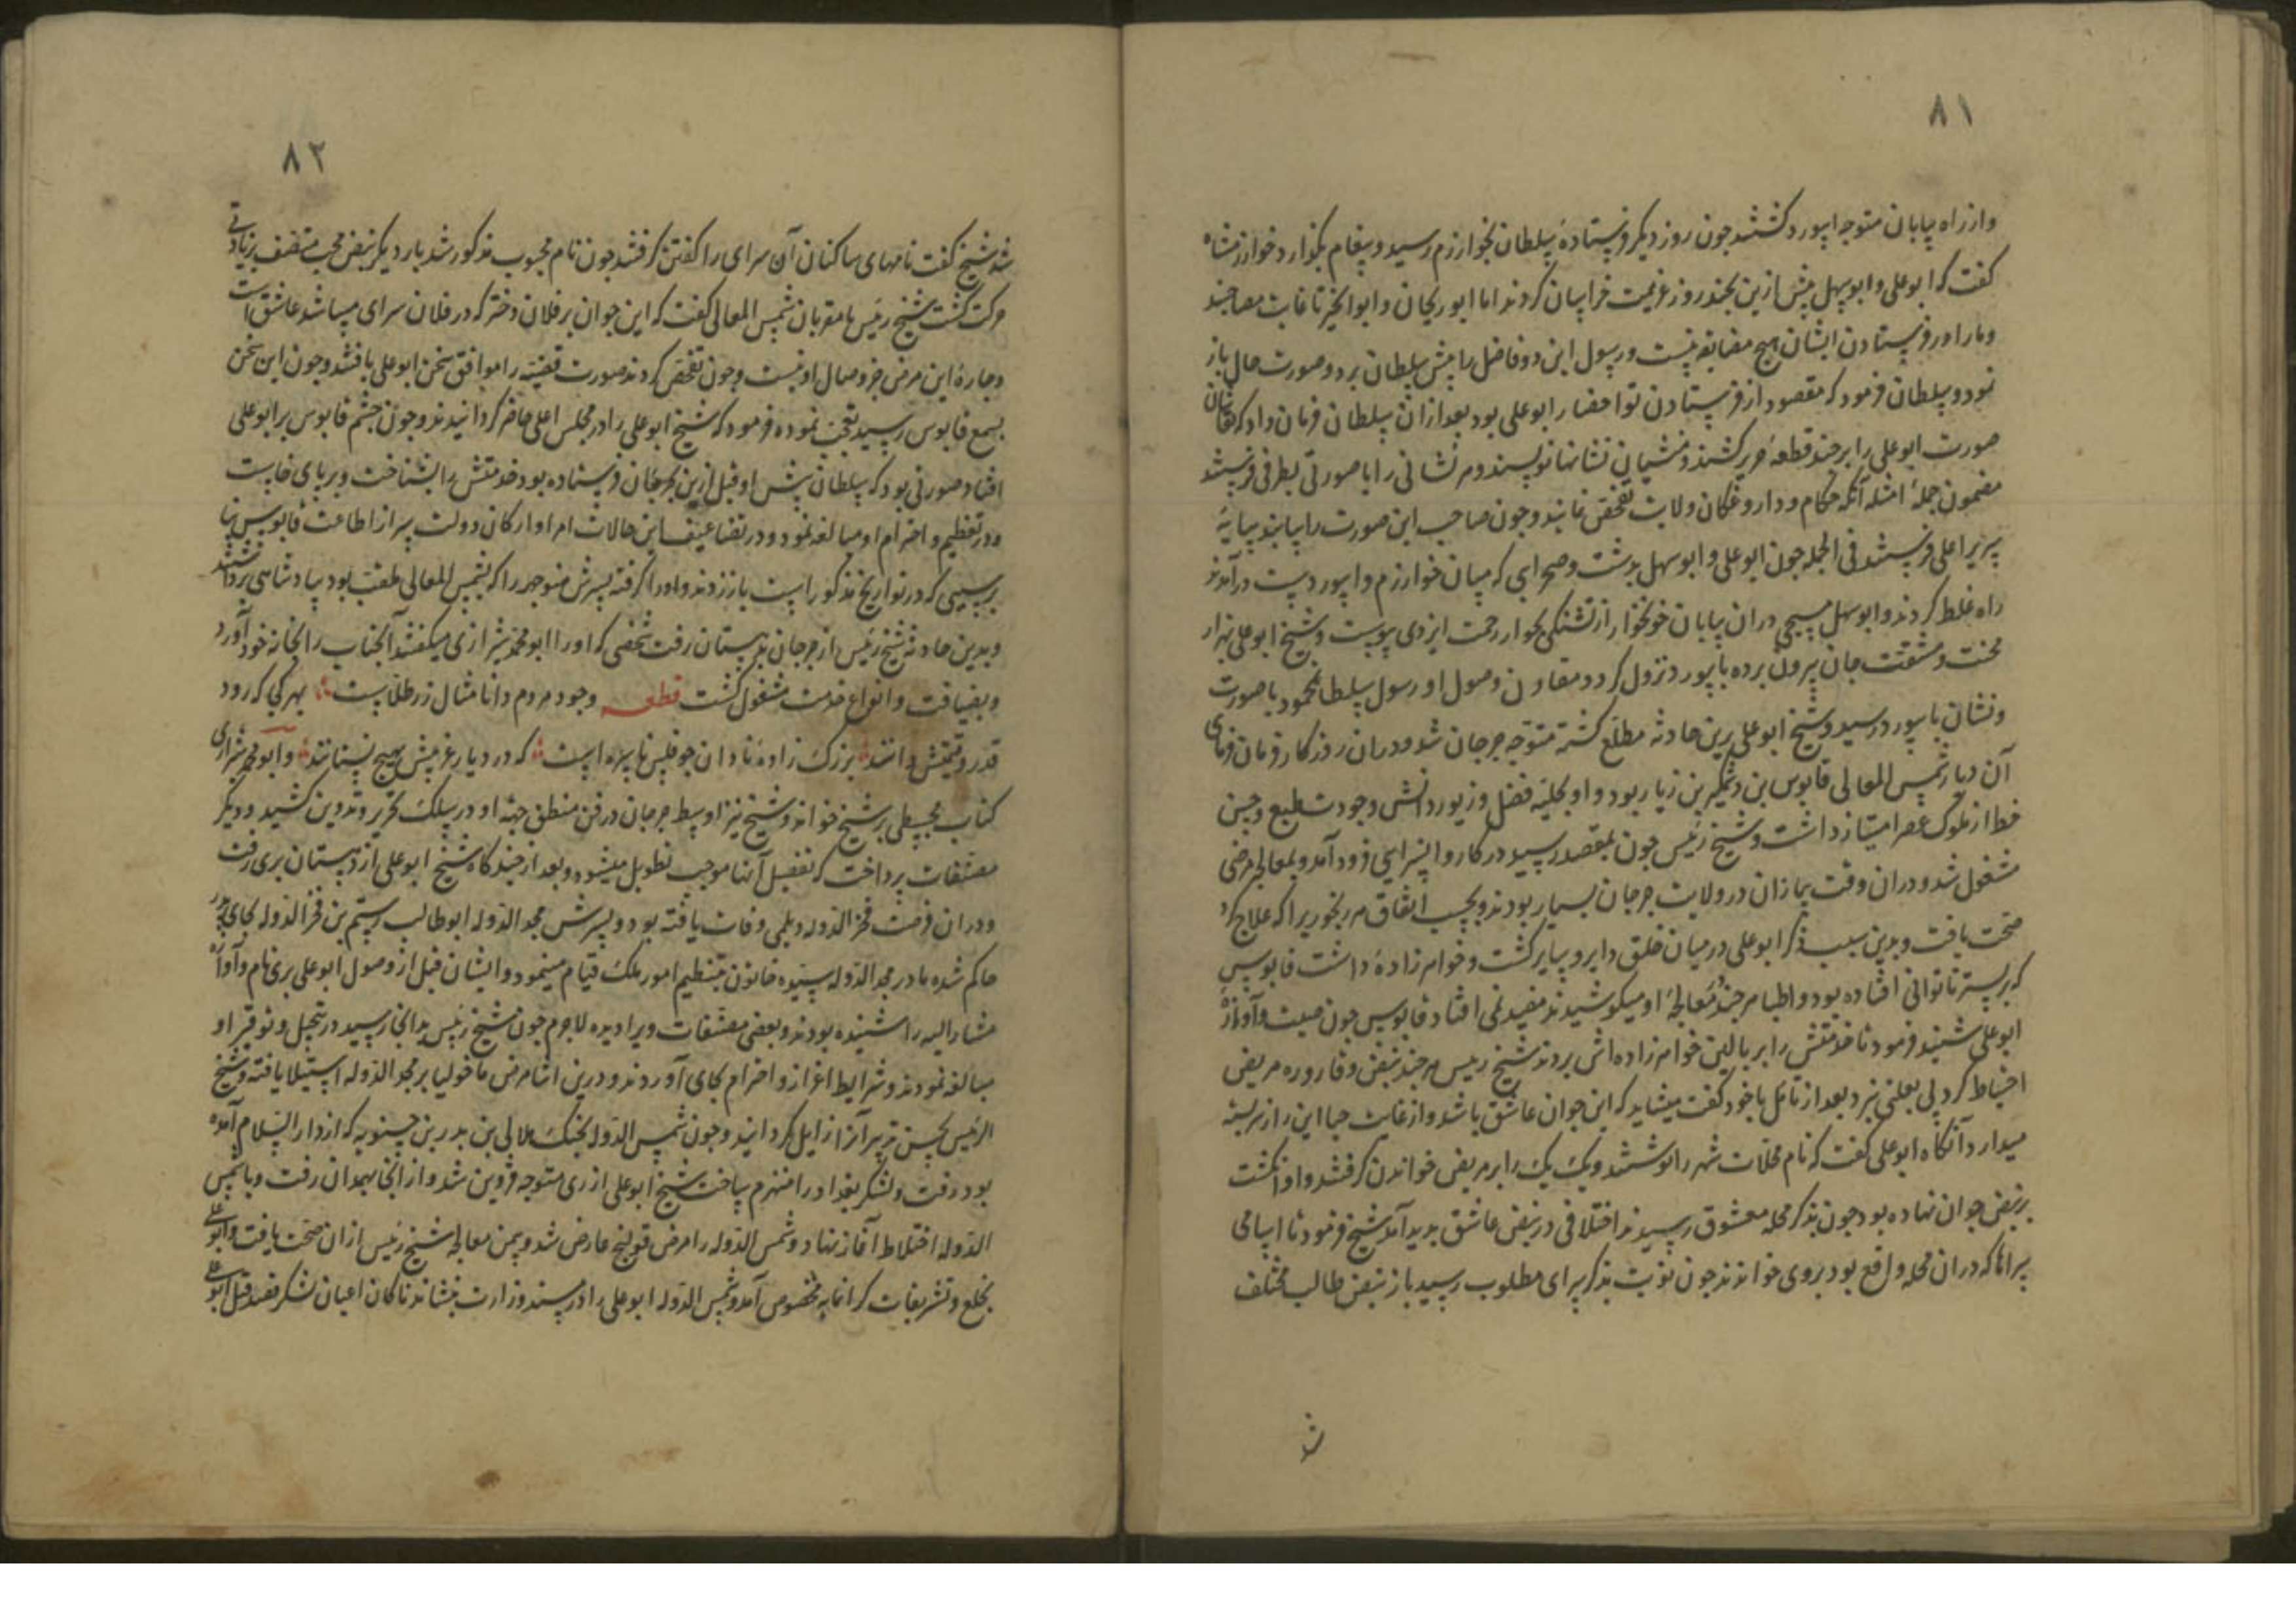 ۸۱
واز راه بیابان متوجه ابیورد کشتند جون روز دیکر فرستادهٔ سلطان بخوارزم رسید و پیغام بکذارد خوارزمشاه
کفت که ابوعلی و ابوسهل پیش ازین بچند روز عزیمت خراسان کردند اما ابوریحان و ابوالخیر تا غایت مصاحبند
و مارا در فرستادن ایشان هیچ مضایقه نیست و رسول این دو فاضل را پیش سلطان برد و صورت حال باز
نمود و سلطان فرمود که مقصود از فرستادن تو احضار ابوعلی بود بعد ازان سلطان فرمان داد که نقاشان
صورت ابوعلی را بر چند قطعهٔ حریر کشند و منشیان نشانها نویسند و هر نشانی را با صورتی بطرفی فرستند
مضمون جملهٔ امثله آنکه حکام و داروغکان ولایت تفحص نمایند و جون صاحب این صورت را بیابند بپایهٔ
سریر اعلی فرستند فی الجمله جون ابوعلی و ابوسهل بدشت و صحرایی که میان خوارزم و ابیوردست درآمدند
راه غلط کردند و ابوسهل مسیحی دران بیابان خونخوار از تشنکی بجوار رحمت ایزدی پیوست و شیخ ابوعلی بهزار
محنت و مشقت جان بیرون برده بابیورد نزول کرد و مقارن وصول او رسول سلطان محمود با صورت
و نشان بابیورد رسید و شیخ ابوعلی برین حادثه مطلع کشته متوجه جرجان شد و دران روزکار فرمان فرمای
آن دیار شمس المعالی قابوس بن وشمکیر بن زیار بود و او بحلیهٔ فضل و زیور دانش و جودت طبع و حسن
خط از ملوک عصر امتیاز داشت و شیخ رئیس جون بمقصد رسید در کاروانسرایی فرود آمد و بمعالجه مرضی
مشغول شد و دران وقت بیماران در ولایت جرجان بسیار بودند و بحسب اتفاق هر رنجوریرا که علاج کرد
صحت یافت و بدین سبب ذکر ابوعلی در میان خلق دایر و سایر کشت و خواهرزادهٔ داشت قابوس
که بر بستر ناتوانی افتاده بود و اطبا هر جند در معالجهٔ او میکوشیدند مفید نمی افتاد قابوس جون صیت و آوازهٔ
ابوعلی شنید فرمود تا خدمتش را بر بالین خواهرزاده اش بردند شیخ رئیس هر جند نبض و قاروره مریض
احتیاط کرد پی بعلتی نبرد بعد از تامل با خود کفت میشاید که این جوان عاشق باشد و از غایت حیا این راز سربسته
میدارد آنکاه ابوعلی کفت که نام محلات شهر را نوشتند و یک یک را بر مریض خواندن کرفتند و او انکشت
بر نبض جوان نهاده بود جون بذکر محله معشوق رسیدند اختلافی در نبض عاشق بدید آمد شیخ فرمود تا اسامی
سراها که دران محله واقع بود بروی خواندند جون نوبت بذکر سرای مطلوب رسید باز نبض طالب مختلف
شد
۸۲
شد شیخ کفت نامهای ساکنان آن سرای را کفتن کرفتند جون نام محبوب مذکور شد بار دیکر نبض محب متصف بزیادتی
حرکت کشت شیخ رئیس با مقربان شمس المعالی کفت که این جوان بر فلان دختر که در فلان سرای میباشد عاشق است
و جارهٔ این مرض جز وصال او نیست و جون تفحص کردند صورت قضیه را موافق سخن ابوعلی یافتند و جون این سخن
بسمع قابوس رسید تعجب نموده فرمود که شیخ ابوعلی را در مجلس اعلی حاضر کردانیدند و جون جشم قابوس بر ابوعلی
افتاد صورتی بود که سلطان پیش او قبل ازین بجرجان فرستاده بود خدمتش را بشناخت و بر پای خاست
و در تعظیم و احترام او مبالغه نمود و در تضاعیف این حالات امرا و ارکان دولت سر از اطاعت قابوس بنا
برسببی که در تواریخ مذکورست باز زدند و او را کرفته پسرش منوجهر را که بشمس المعالی ملقب بود بپادشاهی برداشتند
و بدین حادثه شیخ رئیس از جرجان بدهستان رفت شخصی که اورا ابومحمد شیرازی میکفتند آنجناب را بخانه خود آورد
و بضیافت و انواع خدمت مشغول کشت قطعه وجود مردم دانا مثال زر طلاست بهر کجا که رود
قدر و قیمتش دانند بزرک زادهٔ نادان جو فلس ماهی است که در دیار غریبش بهیچ نستانند و ابومحمد شیرازی
کتاب مجسطی بر شیخ خواند و شیخ نیز اوسط جرجان در فن منطق جهة او در سلک تحریر و تدوین کشید و دیکر
مصنفات پرداخت که تفصیل آنها موجب تطویل میشود و بعد از جندکاه شیخ ابوعلی از دهستان بری رفت
و دران فرصت فخر الدوله دیلمی وفات یافته بود و پسرش مجد الدوله ابوطالب رستم بن فخر الدوله بجای پدر
حاکم شده مادر مجد الدوله سیده خاتون بتنظیم امور ملک قیام مینمود و ایشان قبل از وصول ابوعلی بری نام و آوازهٔ
مشار الیه را شنیده بودند و بعضی مصنفات ویرا دیده لاجرم جون شیخ رئیس بدانجا رسید در تبجیل و توقیر او
مبالغه نمودند و شرایط اعزاز و احترام بجای آوردند و درین اثنا مرض ماخولیا بر مجد الدوله استیلا یافته و شیخ
الرئیس بحسن تدبیر آنرا زایل کردانید و جون شمس الدوله بجنک هلالی بن بدر بن حسنویه که از دار السلام آمده
بود رفت و لشکر بغداد را منهزم ساخت شیخ ابوعلی از ری متوجه قزوین شد و از انجا بهمدان رفت و با شمس
الدوله اختلاط آغاز نهاد و شمس الدوله را مرض قولنج عارض شد و بیمن معالجه شیخ رئیس ازان صحت یافت و ابوعلی
بخلع و تشریفات کرانمایه مخصوص آمد و شمس الدوله ابوعلی را در مسند وزارت بنشاند ناکاه اعیان لشکر قصد قتل ابوعلی